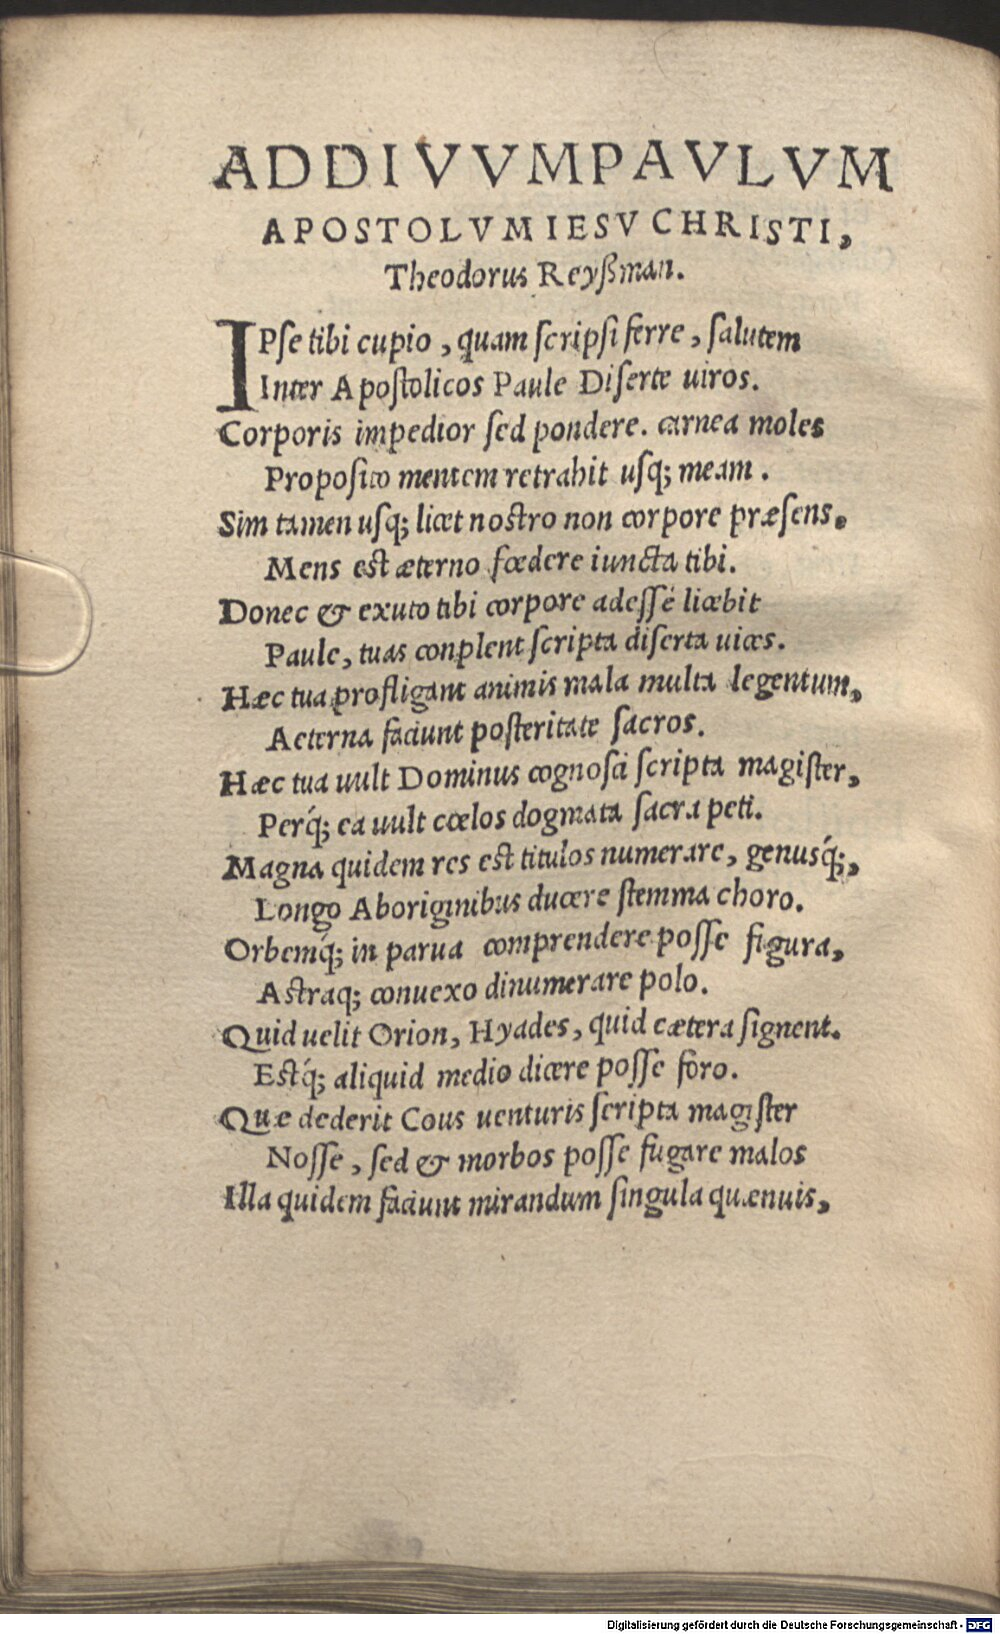 AD DIVVM PAVLVM
APOSTOLVM IESV CHRISTI,
Theodorus Reyßman.
IPse tibi cupio, quam scripsi ferre, salutem
Inter Apostolicos Paule Diserte uiros.
Corporis impedior sed pondere. carnea moles
Proposito mentem retrahit usq; meam.
Sim tamen usq; licet nostro non corpore præsens.
Mens est æterno fœdere iuncta tibi.
Donec & exuto tibi corpore adesse licebit
Paule, tuas conplent scripta diserta uices.
Hæc tua profligant animis mala multa legentum,
Aeterna faciunt posteritate sacros.
Hæc tua uult Dominus cognosci scripta magister,
Perq́; ea uult cœlos dogmata sacra peti.
Magna quidem res est titulos numerare, genusq́;,
Longo Aboriginibus ducere stemma choro.
Orbemq́; in parua comprendere posse figura,
Astraq; conuexo dinumerare polo.
Quid uelit Orion, Hyades, quid cætera signent.
Estq́; aliquid medio dicere posse foro.
Quæ dederit Cous uenturis scripta magister
Nosse, sed & morbos posse fugare malos
Illa quidem faciunt mirandum singula quænuis,
Digitalisierung gefördert durch die Deutsche Forschungsgemeinschaft - DFG